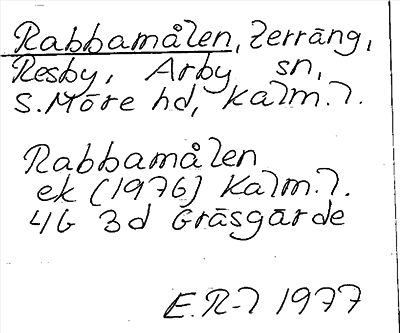 Rabbamålen, terräng,
Resby, Arby sn,
S. Möre hd, Kalm. l.
Rabbamålen
ek (1976) Kalm. l.
4G 3d Gräsgärde
E.R-l 1977